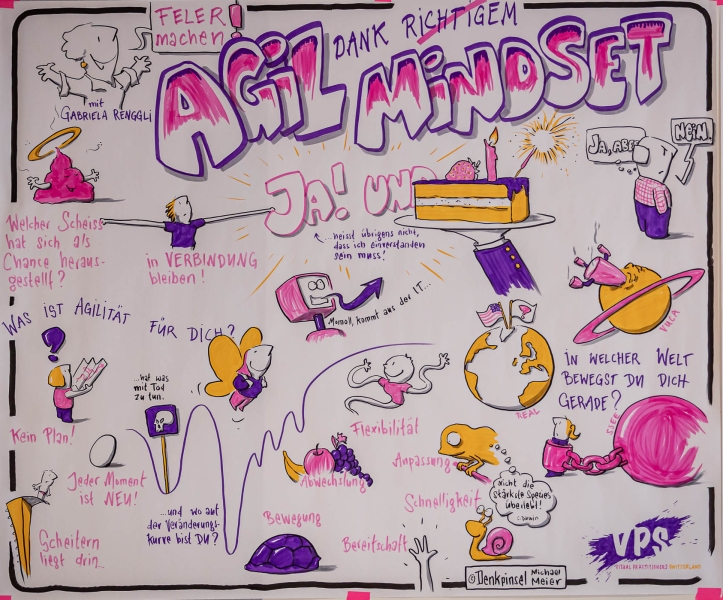 FELER
machen!
mit
GABRIELA RENGGLI
DANK RICHTIGEM
AGiL MiNDSET
JA, ABER
NEIN.
JA! UND
... heisst übrigens nicht,
dass ich einverstanden
sein muss!
Welcher Scheiss
hat sich als
Chance heraus-
gestellt?
in VERBINDUNG
bleiben!
Momoll, kommt aus der IT...
VUCA
WAS IST AGILITÄT FÜR DICH?
Kein Plan!
...hat was
mit Tod
zu tun.
Jeder Moment
ist NEU!
Scheitern
liegt drin...
...und wo auf
der Veränderungs-
kurve bist DU?
Flexibilität
Abwechslung
Bewegung
Anpassung
Schnelligkeit
Bereitschaft
Nicht die
Stärkste Spezies
überlebt!
- Darwin
REAL
IN WELCHER WELT
BEWEGST DU DICH
GERADE?
TIEF
©Denkpinsel Michael
Meier
VPS
VISUAL PRACTITIONERS SWITZERLAND